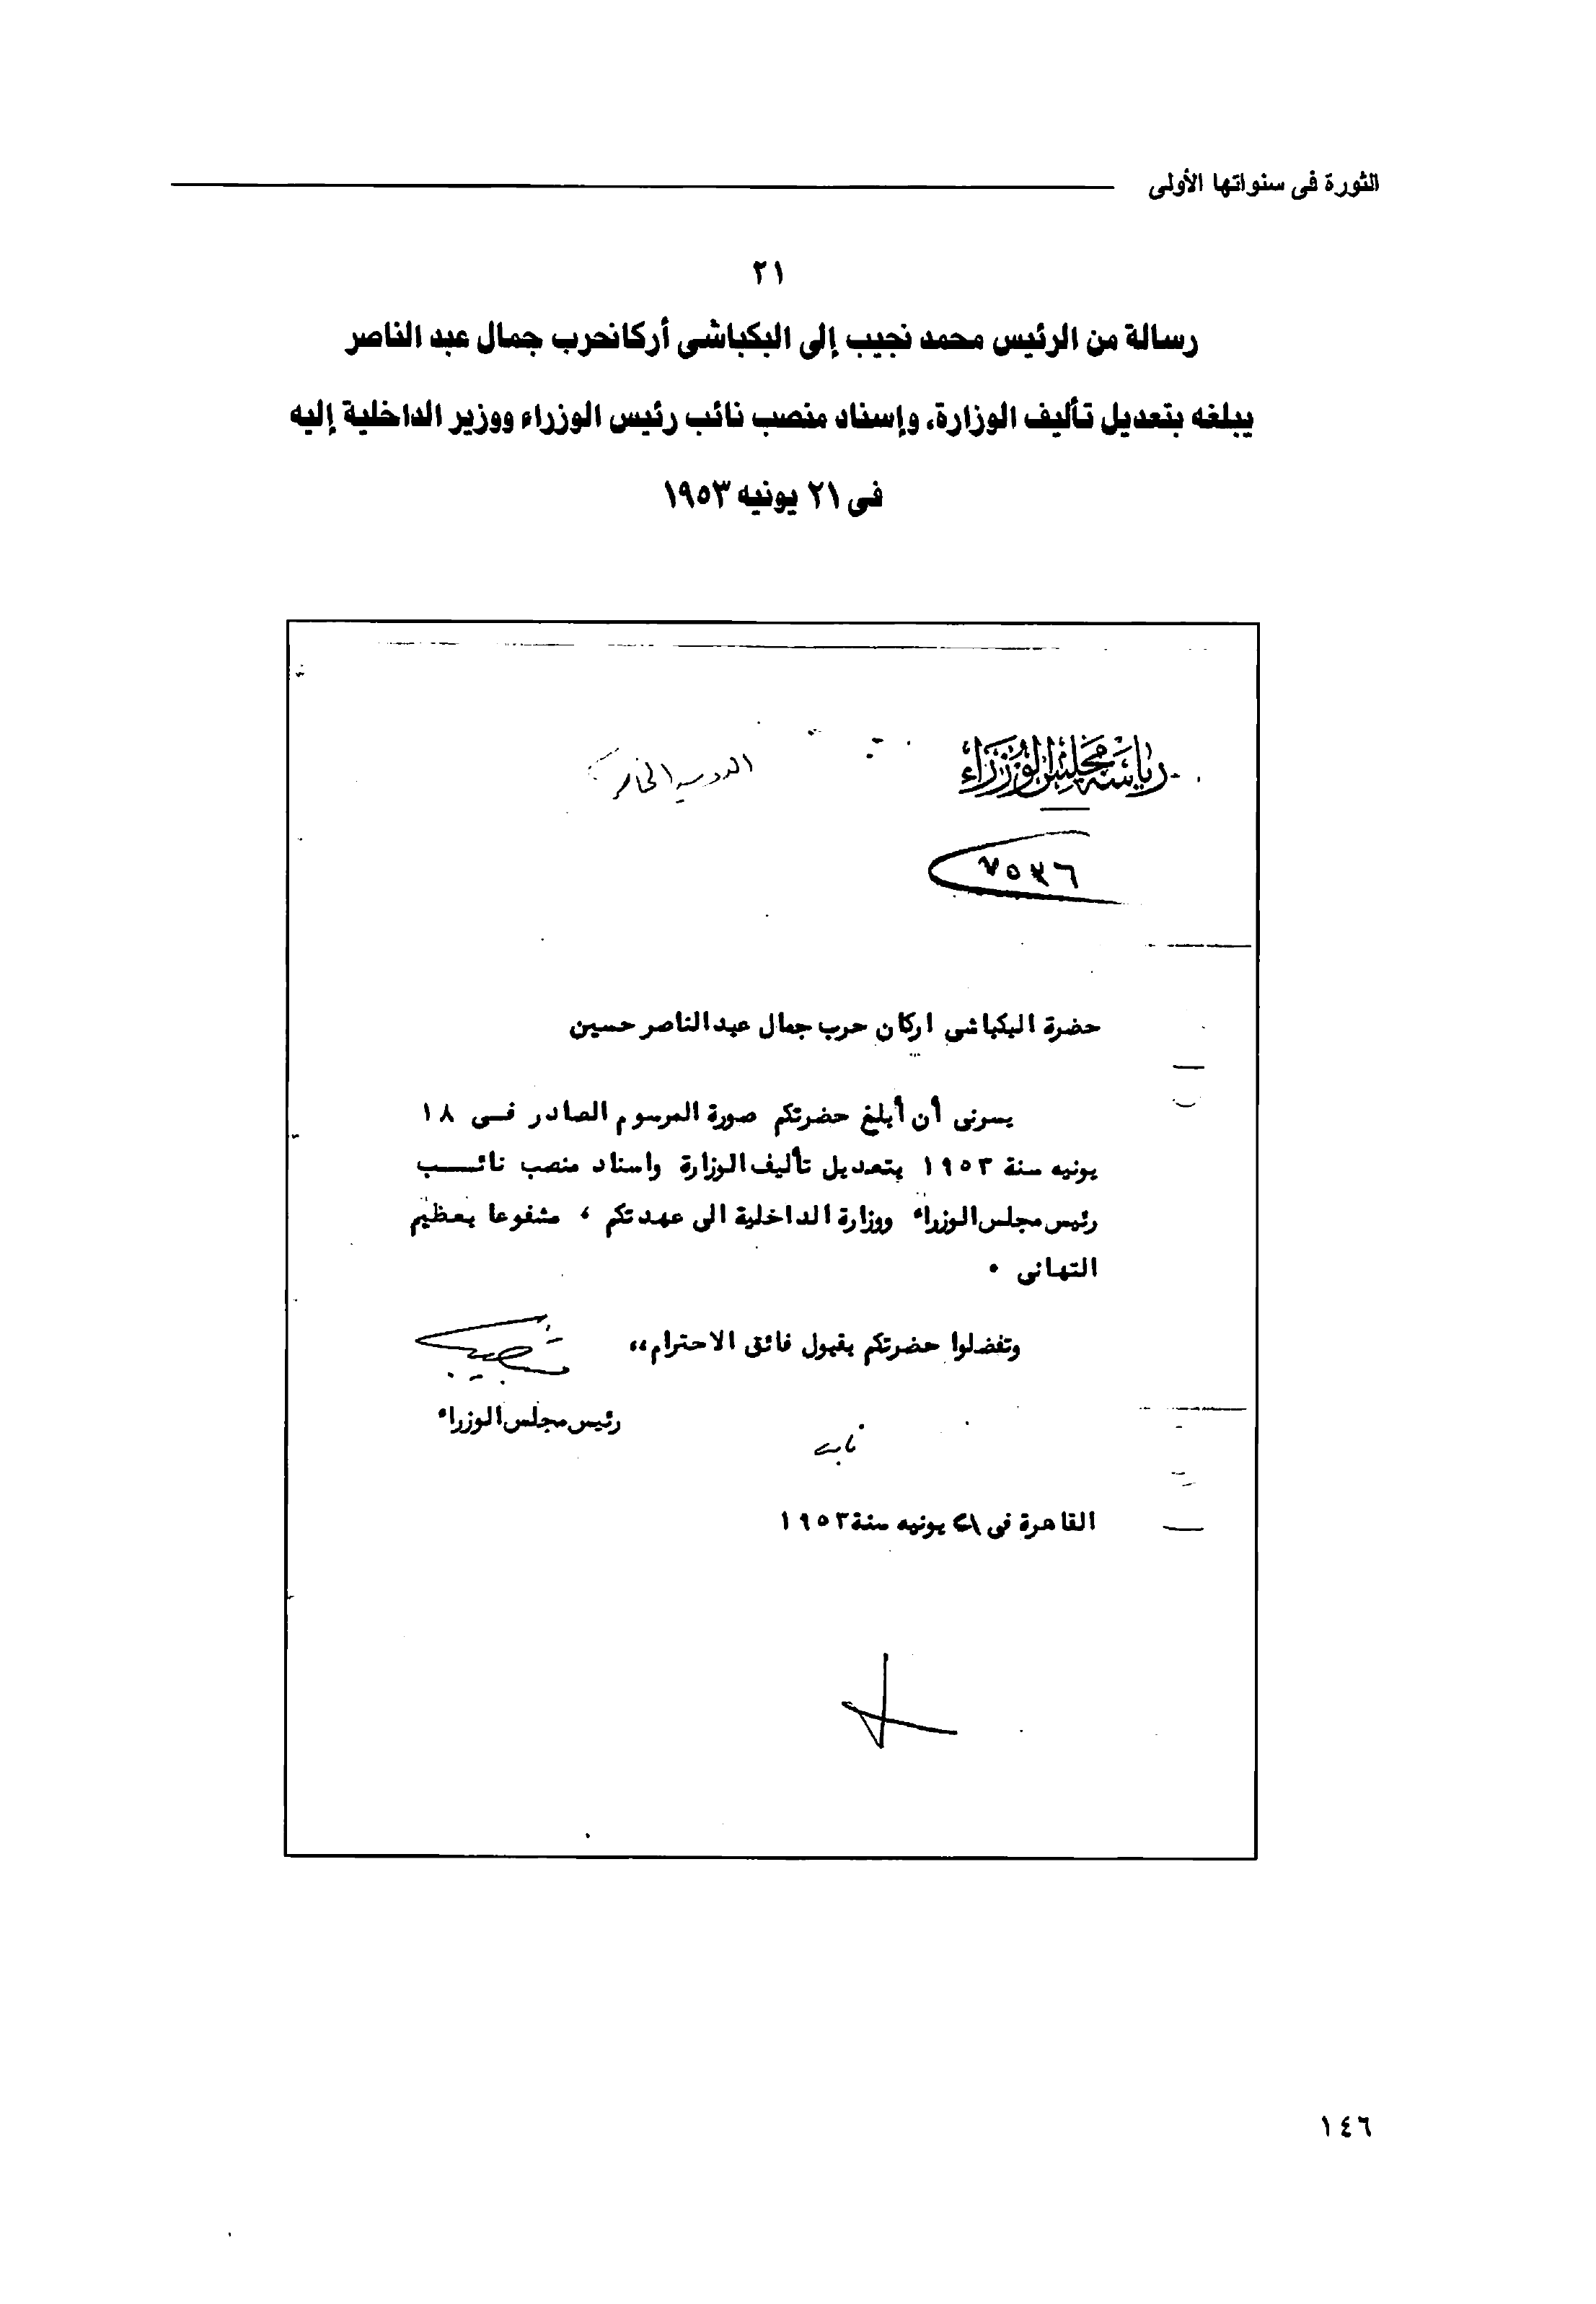 الثورة فى سنواتها الأولى
٢١
رسالة من الرئيس محمد نجيب إلى البكباشى أركانحرب جمال عبد الناصر
يبلغه بتعديل تأليف الوزارة، وإسناد منصب نائب رئيس الوزراء ووزير الداخلية إليه
فى ٢١ يونيه ١٩٥٣
رياسة مجلس الوزراء
حضرة البكباشى اركان حرب جمال عبدالناصر حسين
يسرنى أن أبلغ حضرتكم صورة المرسوم الصادر فى ١٨
يونيه سنة ١٩٥٣ بتعديل تأليف الوزارة واسناد منصب نائب
رئيس مجلس الوزراء ووزارة الداخلية الى عهدتكم ، مشفوعا بعظيم
التهانى ٠
وتفضلوا حضرتكم بقبول فائق الاحترام،،
نجيب
رئيس مجلس الوزراء
القاهرة فى ٢١ يونيه سنة ١٩٥٣
١٤٦